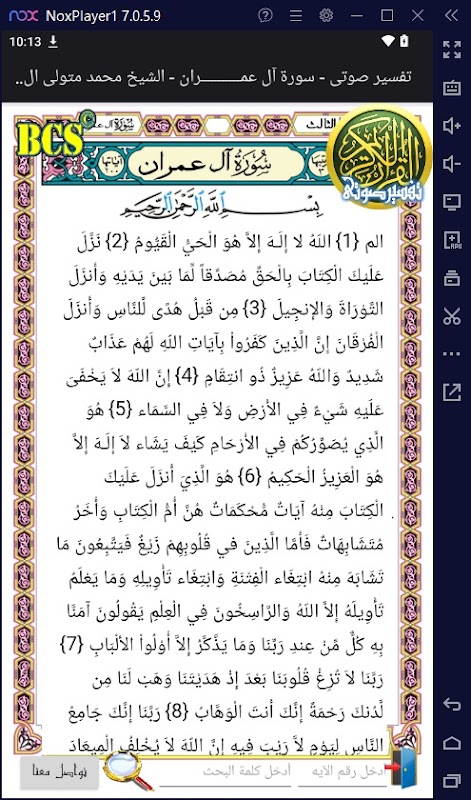 NoxPlayer1 7.0.5.9
10:13
تفسير صوتى - سورة آل عمـــــــــران - الشيخ محمد متولى ال..
BCS
سُورَةُ آلِ عمران
الثالث
القرآن الكريم
تفسير صوتى
سُورَةُ آلِ عمران
بِسْمِ اللَّهِ الرَّحْمَٰنِ الرَّحِيمِ
الم {1} اللّهُ لا إِلَـهَ إِلاَّ هُوَ الْحَيُّ الْقَيُّومُ {2} نَزَّلَ
عَلَيْكَ الْكِتَابَ بِالْحَقِّ مُصَدِّقاً لِّمَا بَيْنَ يَدَيْهِ وَأَنزَلَ
التَّوْرَاةَ وَالإِنجِيلَ {3} مِن قَبْلُ هُدًى لِّلنَّاسِ وَأَنزَلَ
الْفُرْقَانَ إِنَّ الَّذِينَ كَفَرُواْ بِآيَاتِ اللّهِ لَهُمْ عَذَابٌ
شَدِيدٌ وَاللّهُ عَزِيزٌ ذُو انتِقَامٍ {4} إِنَّ اللّهَ لاَ يَخْفَىَ
عَلَيْهِ شَيْءٌ فِي الأَرْضِ وَلاَ فِي السَّمَاء {5} هُوَ
الَّذِي يُصَوِّرُكُمْ فِي الأَرْحَامِ كَيْفَ يَشَاء لاَ إِلَـهَ إِلاَّ
هُوَ الْعَزِيزُ الْحَكِيمُ {6} هُوَ الَّذِيَ أَنزَلَ عَلَيْكَ
الْكِتَابَ مِنْهُ آيَاتٌ مُّحْكَمَاتٌ هُنَّ أُمُّ الْكِتَابِ وَأُخَرُ
مُتَشَابِهَاتٌ فَأَمَّا الَّذِينَ في قُلُوبِهِمْ زَيْغٌ فَيَتَّبِعُونَ مَا
تَشَابَهَ مِنْهُ ابْتِغَاء الْفِتْنَةِ وَابْتِغَاء تَأْوِيلِهِ وَمَا يَعْلَمُ
تَأْوِيلَهُ إِلاَّ اللّهُ وَالرَّاسِخُونَ فِي الْعِلْمِ يَقُولُونَ آمَنَّا
بِهِ كُلٌّ مِّنْ عِندِ رَبِّنَا وَمَا يَذَّكَّرُ إِلاَّ أُوْلُواْ الألْبَابِ {7}
رَبَّنَا لاَ تُزِغْ قُلُوبَنَا بَعْدَ إِذْ هَدَيْتَنَا وَهَبْ لَنَا مِن
لَّدُنكَ رَحْمَةً إِنَّكَ أَنتَ الْوَهَّابُ {8} رَبَّنَا إِنَّكَ جَامِعُ
النَّاسِ لِيَوْمٍ لاَّ رَيْبَ فِيهِ إِنَّ اللّهَ لاَ يُخْلِفُ الْمِيعَادَ
أدخل رقم الآيه
أدخل كلمة البحث
تواصل معنا